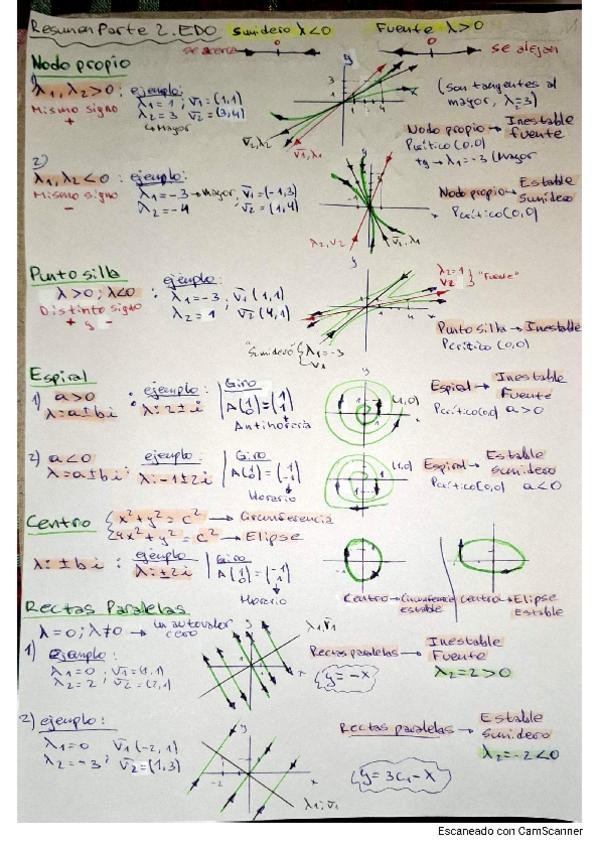 Resumen Parte 2. EDO Sumidero λ<0 Fuente λ>0
se acerca 0 0 se alejan
Nodo propio
1) λ1, λ2 > 0 : ejemplo:
Mismo signo
+
λ1 = 1 ; v1 = (1,1)
λ2 = 3 v2 = (3,4)
↳ Mayor
y
3
1
1 4
x
v2, λ2
v1, λ1
(son tangentes al
mayor, λ=3)
Nodo propio → Inestable
Fuente
Pcrítico (0,0)
tg → λ1 = -3 (Mayor
2)
λ1, λ2 < 0 : ejemplo:
Mismo signo
-
λ1 = -3 → Mayor; v1 = (-1,3)
λ2 = -4 v2 = (1,4)
y
x
λ2, v2
v1, λ1
Nodo propio → Estable
Sumidero
Pcrítico (0,0)
Punto silla
λ>0 ; λ<0 : ejemplo:
Distinto signo
+ y -
λ1 = -3 ; v1 (1,1)
λ2 = 1 ; v2 (4,1)
y
1
4
x
λ2 = 1
v2 } "Fuente"
"Sumidero" { λ1 = -3
v1
Punto silla → Inestable
Pcrítico (0,0)
Espiral
1) a>0 : ejemplo:
λ = a ± bi λ: 2 ± i
Giro
A(1 0) = (1 1)
Antihorario
(1,0)
1
Espiral → Inestable
Fuente
Pcrítico (0,0) a>0
2) a<0 ejemplo:
λ = a ± bi λ: -1 ± 2i
Giro
A(1 0) = (1 -1)
Horario
(1,0)
1
Espiral → Estable
Sumidero
Pcrítico (0,0) a<0
Centro { x² + y² = c² → Circunferencia
4x² + y² = c² → Elipse
λ: ± bi : ejemplo
λ: ± 2i
Giro
A(1 0) = (-1 1)
Horario
Centro → Circunferencia
estable
Centro → Elipse
Estable
Rectas Paralelas
λ = 0 ; λ ≠ 0 → un autovalor
cero
1) ejemplo:
λ1 = 0 ; v1 = (1,1)
λ2 = 2 ; v2 = (2,1)
y
x
λ1, v1
Rectas paralelas → Inestable
Fuente
y = -x
λ2 = 2 > 0
2) ejemplo:
λ1 = 0 v1 (-2,1)
λ2 = -3 ; v2 = (1,3)
y
-2
1
x
λ1; v1
Rectas paralelas → Estable
Sumidero
λ2 = -2 < 0
y = 3c1 - x
Escaneado con CamScanner